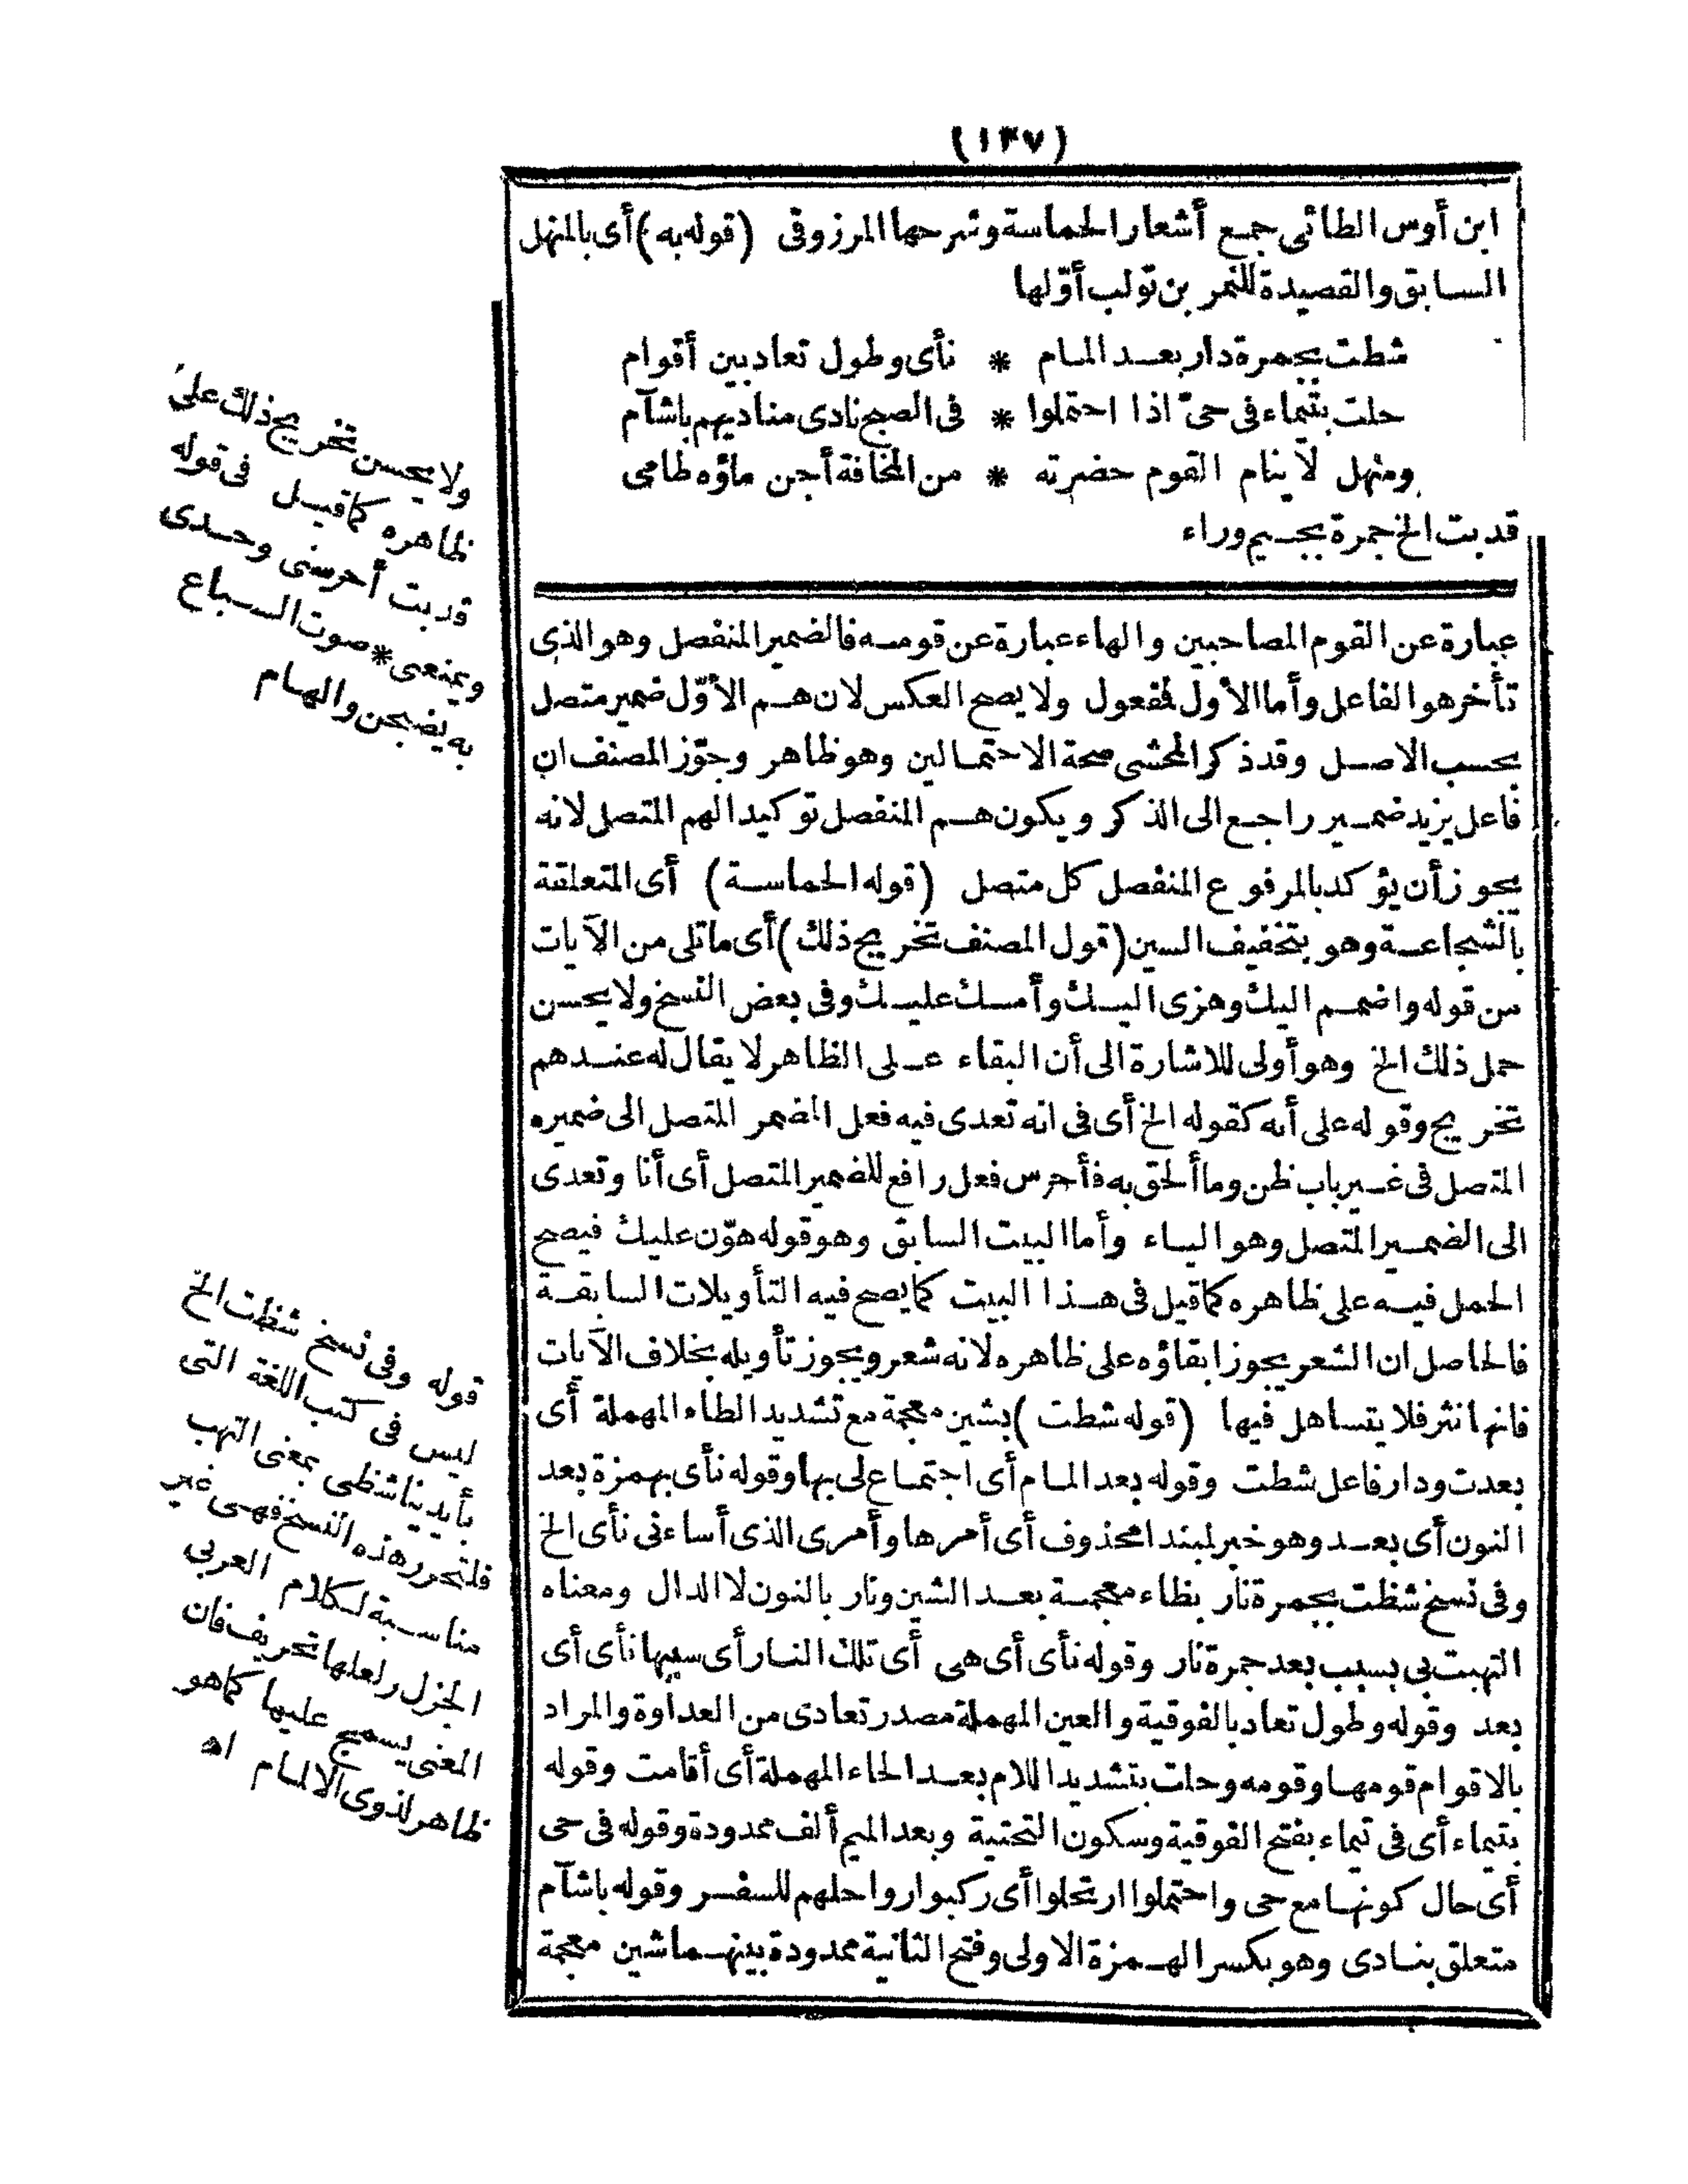 (١٣٧)
ابن أوس الطائى جمع أشعار الحماسة وشرحها المرزوقى (قوله به) أى بالمنهل
السابق والقصيدة للنمر بن تولب أوّلها
شطت بجمرة دار بعد المام * نأى وطول تعاد بين أقوام
حلت بتيماء فى حىّ اذا احتملوا * فى الصبح نادى مناديهم باشآم
ومنهل لا ينام القوم حضرته * من المخافة أجن ماؤه طامى
قد بت الخ جمرة بجيم وراء
عبارة عن القوم المصاحبين والهاء عبارة عن قومه فالضمير المنفصل وهو الذى
تأخر هو الفاعل وأما الأول فمفعول ولا يصح العكس لان هم الأوّل ضمير متصل
بحسب الاصل وقد ذكر المحشى صحة الاحتمالين وهو ظاهر وجوّز المصنف ان
فاعل يزيد ضمير راجع الى الذكر ويكون هم المنفصل توكيدا لهم المتصل لانه
يجوز أن يؤكد بالمرفوع المنفصل كل متصل (قوله الحماسة) أى المتعلقة
بالشجاعة وهو بتخفيف السين (قول المصنف تخريج ذلك) أى ما تلى من الآيات
من قوله واضمم اليك وهزى اليك وأمسك عليك وفى بعض النسخ ولا يحسن
حمل ذلك الخ وهو أولى للاشارة الى أن البقاء على الظاهر لا يقال له عندهم
تخريج وقوله على أنه كقوله الخ أى فى انه تعدى فيه فعل المضمر المتصل الى ضميره
المتصل فى غير باب ظن وما ألحق به فأحرس فعل رافع للضمير المتصل أى أنا وتعدى
الى الضمير المتصل وهو الياء وأما البيت السابق وهو قوله هوّن عليك فيصح
الحمل فيه على ظاهره كما قيل فى هذا البيت كما يصح فيه التأويلات السابقة
فالحاصل ان الشعر يجوز ابقاؤه على ظاهره لانه شعر ويجوز تأويله بخلاف الآيات
فانها نثر فلا يتساهل فيها (قوله شطت) بشين معجمة مع تشديد الطاء المهملة أى
بعدت ودار فاعل شطت وقوله بعد المام أى اجتماعى بها وقوله نأى بهمزة بعد
النون أى بعد وهو خبر لمبتدا محذوف أى أمرها وأمرى الذى أساءنى نأى الخ
وفى نسخ شظت بجمرة نار بظاء معجمة بعد الشين ونار بالنون لا الدال ومعناه
التهبت بى بسبب بعد جمرة نار وقوله نأى أى هى أى تلك النار أى سببها نأى أى
بعد وقوله وطول تعاد بالفوقية والعين المهملة مصدر تعادى من العداوة والمراد
بالاقوام قومها وقومه وحلت بتشديد اللام بعد الحاء المهملة أى أقامت وقوله
بتيماء أى فى تيماء بفتح الفوقية وسكون التحتية وبعد الميم ألف ممدودة وقوله فى حى
أى حال كونها مع حى واحتملوا ارتحلوا أى ركبوا رواحلهم للسفر وقوله باشآم
متعلق بنادى وهو بكسر الهمزة الاولى وفتح الثانية ممدودة بينهما شين معجمة
ولا يحسن تخريج ذلك على
ظاهره كما قيل فى قوله
قد بت أحرسنى وحدى
ويمنعنى * صوت السباع
به يضبحن والهام
قوله وفى نسخ شظت الخ
ليس فى كتب اللغة التى
بأيدينا شظى بمعنى التهب
فلتحرر هذه النسخ فهى غير
مناسبة لكلام العربى
الجزل ولعلها تحريف فان
المعنى يسمج عليها كما هو
ظاهر لذوى الالمام اه